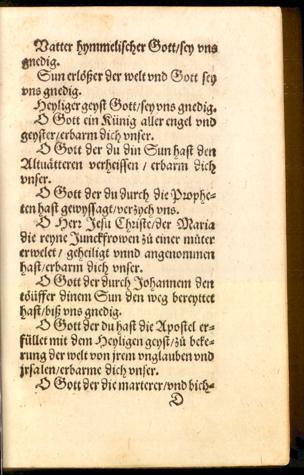 Vatter hymmelischer Gott/sey vns
gnedig.
Sun erlößer der welt vnd Gott sey
vns gnedig.
Heyliger geyst Gott/sey vns gnedig.
O Gott ein Künig aller engel vnd
geyster/erbarm dich vnser.
O Gott der du din Sun hast den
Altuätteren verheissen / erbarm dich
vnser.
O Gott der du durch die Prophe-
ten hast gewyssagt/verzych vns.
O Herr Jesu Christe/der Maria
die reyne Junckfrowen zů einer můter
erwelet/ geheiligt vnnd angenommen
hast/erbarm dich vnser.
O Gott der durch Johannem den
töüffer dinem Sun den weg bereyttet
hast/biß vns gnedig.
O Gott der du hast die Apostel er-
füllet mit dem Heyligen geyst/zů beke-
rung der welt von jrem vnglauben vnd
jrsalen/erbarme dich vnser.
O Gott der die marterer/vnd bich-
D